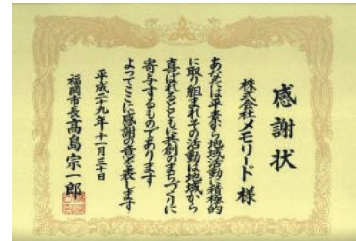 感謝状
株式会社メモリード 様
あなたは平素から地域活動に積極的
に取り組まれその活動は地域から
喜ばれるとともに共創のまちづくりに
寄与するものであります
よってここに感謝の意を表します
平成二十九年十一月三十日
福岡市長 高島宗一郎